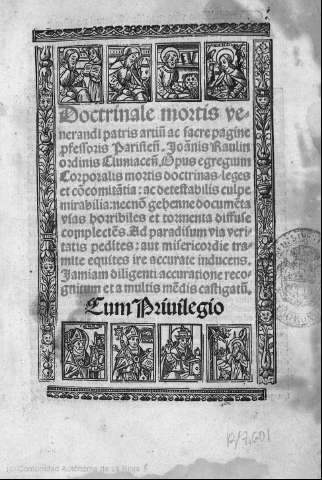 Doctrinale mortis ve-
nerandi patris artiũ ac sacre pagine
ꝓfessoris Parisieñ. Joãnis Raulin
ordinis Cluniaceñ. Opus egregium
Corporalis mortis doctrinas-leges
et cõcomitãtia: ac detestabilis culpe
mirabilia: necnõ gehenne documẽta
vsas horribiles et tormenta diffuse
complectẽs. Ad paradisum via veri
tatis pedites: aut misericordie tra-
mite equites ire accurate inducens.
Jamiam diligenti accuratione reco-
gnitum et a multis mẽdis castigatũ.
Cum Priuilegio
(c) Comunidad Autónoma de La Rioja